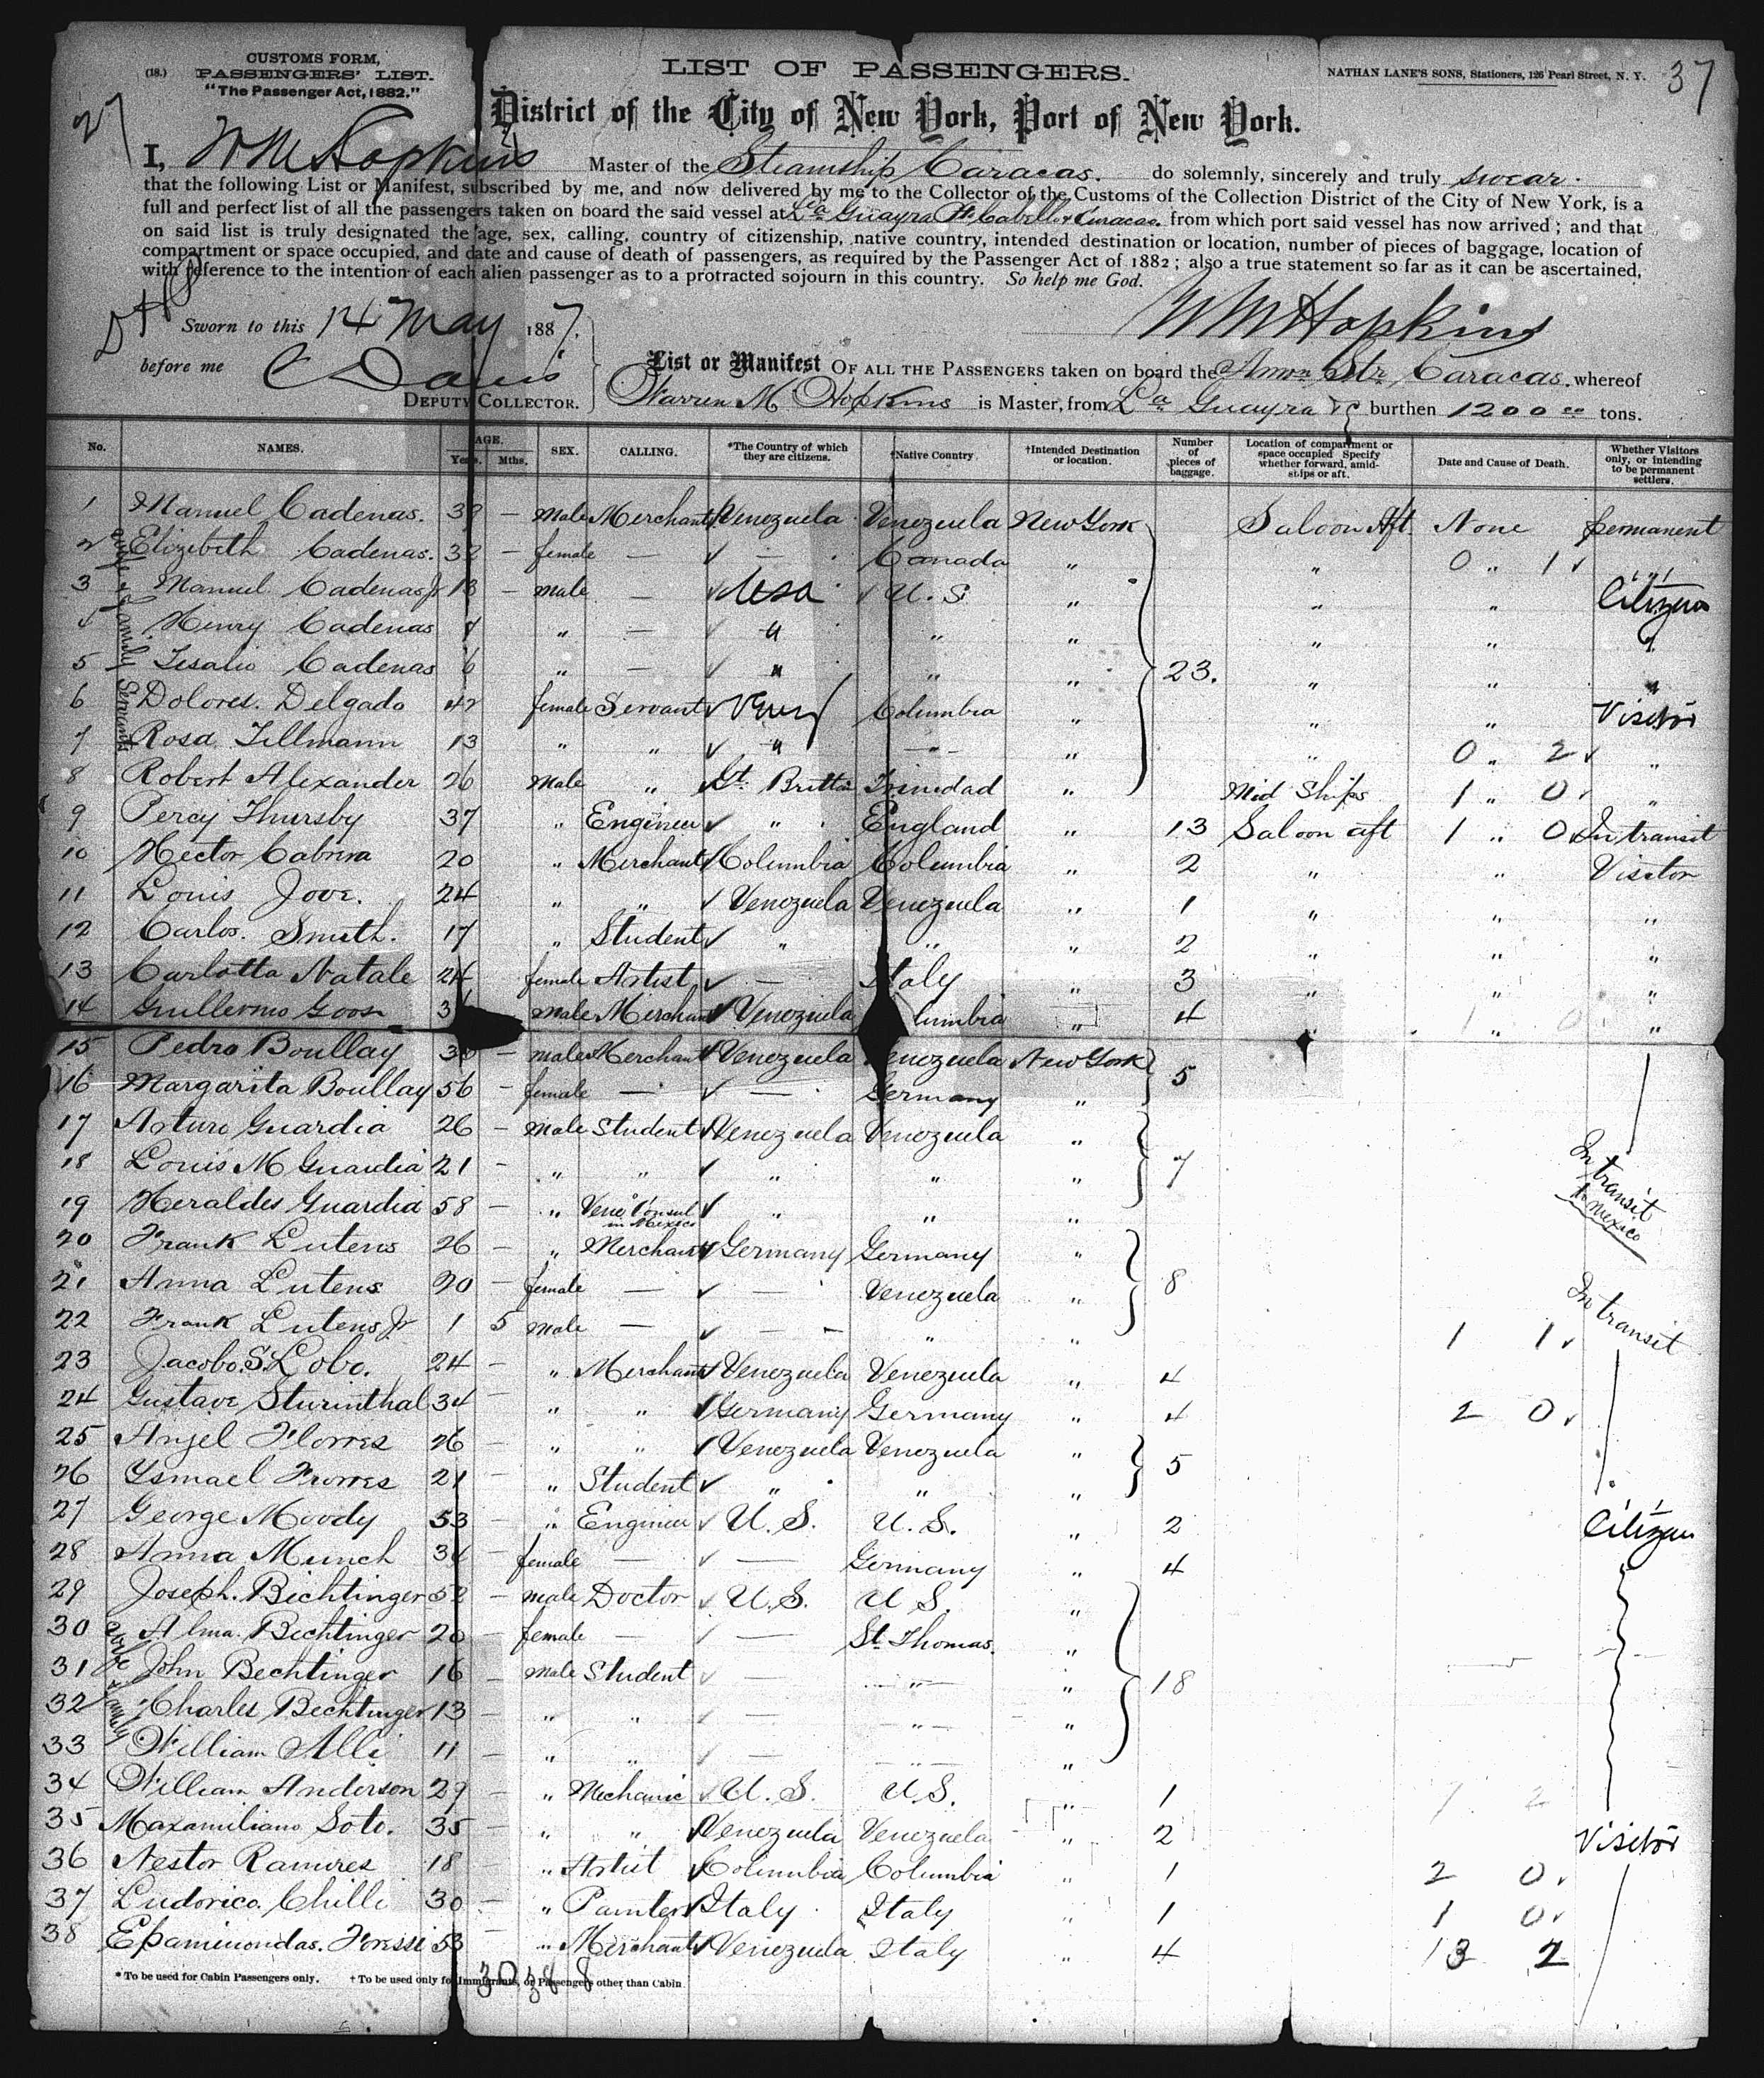 (18.) CUSTOMS FORM,
PASSENGERS' LIST.
"The Passenger Act, 1882."
LIST OF PASSENGERS.
NATHAN LANE'S SONS, Stationers, 126 Pearl Street, N. Y.
37
27
District of the City of New York, Port of New York.
I, W M Hopkins Master of the Steamship Caracas. do solemnly, sincerely and truly swear.
that the following List or Manifest, subscribed by me, and now delivered by me to the Collector of the Customs of the Collection District of the City of New York, is a
full and perfect list of all the passengers taken on board the said vessel at La Guayra Pt. Cabello & Curacao. from which port said vessel has now arrived; and that
on said list is truly designated the age, sex, calling, country of citizenship, native country, intended destination or location, number of pieces of baggage, location of
compartment or space occupied, and date and cause of death of passengers, as required by the Passenger Act of 1882; also a true statement so far as it can be ascertained,
with reference to the intention of each alien passenger as to a protracted sojourn in this country. So help me God.
Sworn to this 14 May 1887.
W M Hopkins
before me C Davis
DEPUTY COLLECTOR.
List or Manifest OF ALL THE PASSENGERS taken on board the Amn Str Caracas, whereof
Warren M Hopkins is Master, from La Guayra &c burthen 1200 tons.
No. NAMES. AGE. Years. Mths. SEX. CALLING. *The Country of which they are citizens. †Native Country. †Intended Destination or location. Number of pieces of baggage. Location of compartment or space occupied Specify whether forward, amidships or aft. Date and Cause of Death. Whether Visitors only, or intending to be permanent settlers.
1 Manuel Cadenas. 39 – male Merchant Venezuela Venezuela New York Saloon Aft. None permanent
2 Elizebeth Cadenas. 32 – female — — Canada " " 0 " 1 "
3 Manuel Cadenas Jr 13 – male — Usa U. S. " " " Citizen
4 Henry Cadenas " — " " " " " "
5 Cadenas 6 " — " " " 23. " " "
6 Dolores. Delgado 42 female Servant Venz Columbia " " " Visitor
7 Rosa Tillmann 13 " " " — " " 0 " 2 "
8 Robert Alexander 26 male " Gt. Brittain Trinidad " Mid Ships 1 " 0 "
9 Percy Thursby 37 " Engineer " England " 13 Saloon aft 1 " 0 In transit
10 Hector Cabrera 20 " Merchant Columbia Columbia " 2 " " Visitor
11 Louis Jove. 24 " " Venezuela Venezuela " 1 " " "
12 Carlos. Smith. 17 " Student " " " 2 " " "
13 Carlotta Natale 24 female Artist — Italy " 3 " " "
14 Guillermo Goos 3 male Merchant Venezuela lumbia " 4 " " "
15 Pedro Boullay 30 – male Merchant Venezuela enezuela New York 5
16 Margarita Boullay 56 – female — — Germany "
17 Arturo Guardia 26 – male Student Venezuela Venezuela " 7 In transit to Mexico
18 Louis M Guardia 21 – " " " " "
19 Heraldes Guardia 58 – " Vene Consul in Mexico " " "
20 Frank Lutens 26 – " Merchant Germany Germany " 8
21 Anna Lutens 20 – female — — Venezuela " In transit
22 Frank Lutens Jr 1 5 male — — " " 1 1
23 Jacobo. S. Lobo. 24 – " Merchant Venezuela Venezuela " 4
24 Gustave Sturinthal 34 – " " Germany Germany " 4 2 0
25 Anjel Florres 26 – " " Venezuela Venezuela " 5
26 Ysmael 21 – " Student " " "
27 George Moody 53 – " Engineer U. S. U. S. " 2 Citizen
28 Anna Munch 34 – female — — Germany " 4
29 Joseph. Bichtinger 52 – male Doctor U. S. U S. " 18
30 Alma. Bechtinger 20 – female — — St. Thomas. "
31 John Bechtinger 16 – male Student — " "
32 Charles Bechtinger 13 – " " — " "
33 William Alli 11 – " " — — "
34 William Anderson 29 – " Mechanic U. S. U. S. " 1
35 Maxamiliano Soto. 35 – " " Venezuela Venezuela " 2 Visitor
36 Nestor Ramires 18 – " Artist Columbia Columbia " 1 2 0
37 Ludorico. Chilli 30 – " Painter Italy Italy " 1 1 0
38 Epaminondas. 53 " Merchant Venezuela Italy " 4 13 2
wife & Family
Servants
wife & Family
* To be used for Cabin Passengers only. † To be used only for Immigrants, or Passengers other than Cabin
30 38 8